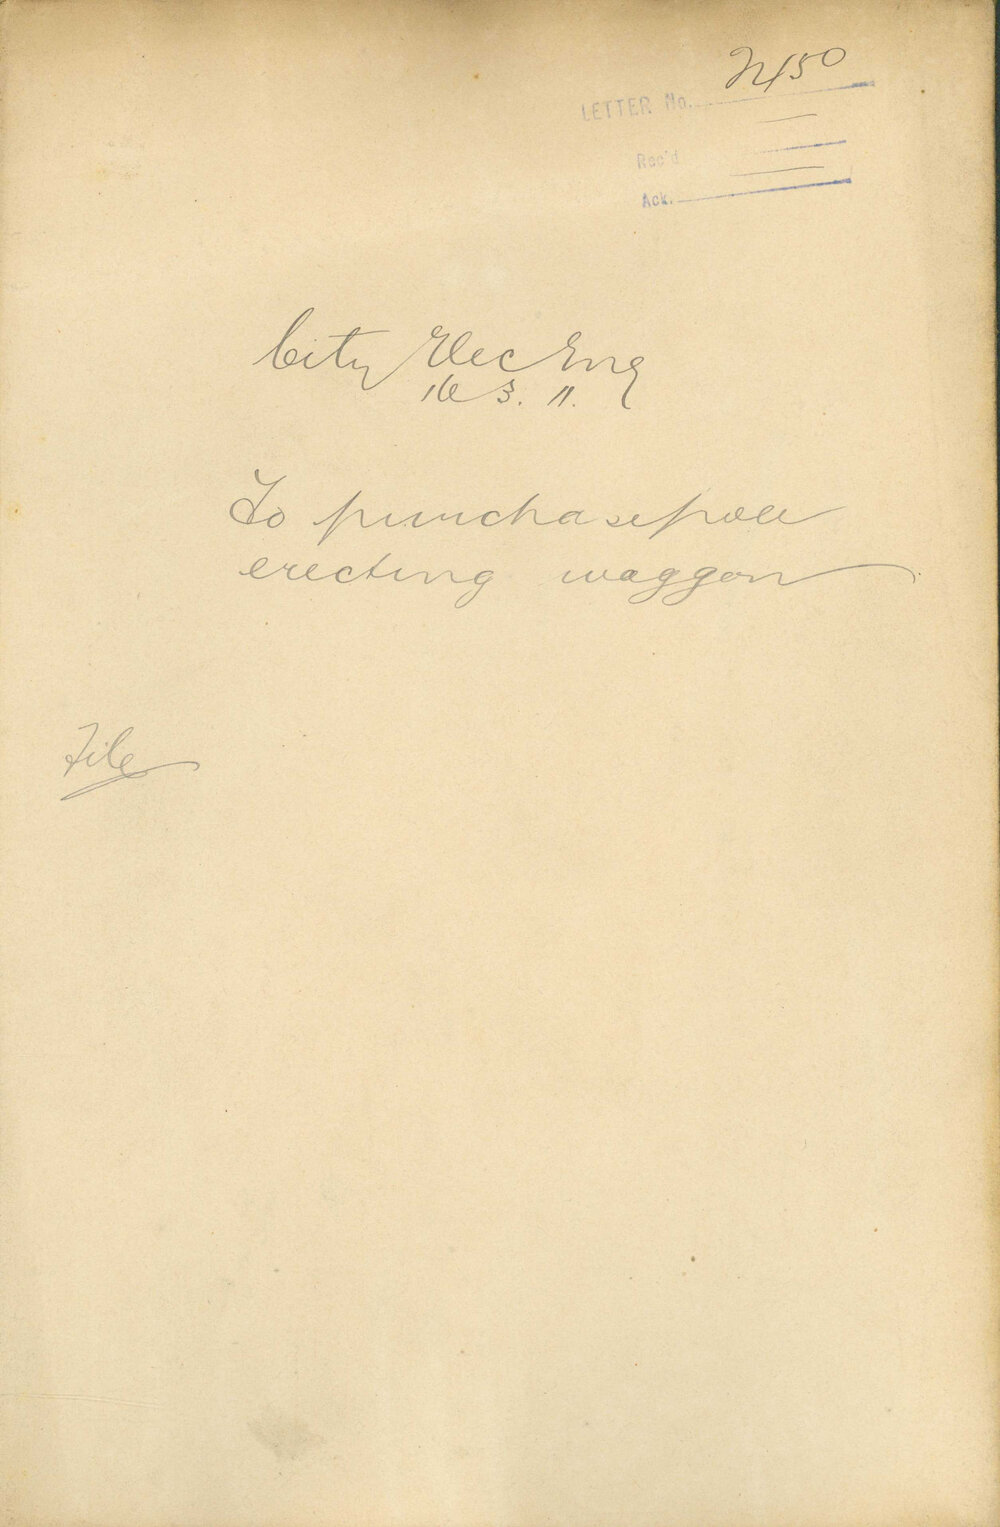 LETTER No. 2450
Rec'd
Ack.
City Elec Eng
16 3. 11.
To purchase pole
erecting waggon
File